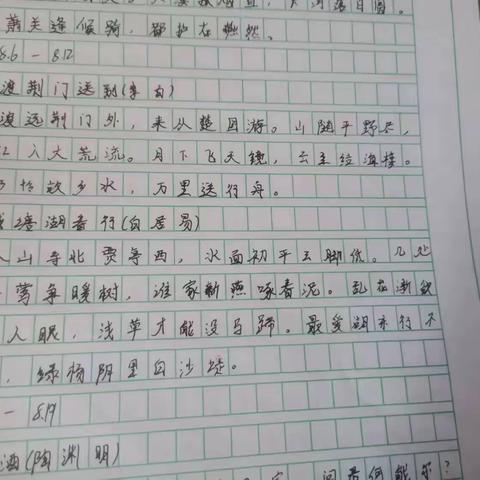 萧关逢候骑，都护在燕然。
8.6 — 8.12
渡荆门送别(李白)
渡远荆门外，来从楚国游。山随平野尽，
江入大荒流。月下飞天镜，云生结海楼。
仍怜故乡水，万里送行舟。
钱塘湖春行(白居易)
山寺北贾亭西，水面初平云脚低。几处
莺争暖树，谁家新燕啄春泥。乱花渐欲
人眼，浅草才能没马蹄。最爱湖东行不
，绿杨阴里白沙堤。
— 8.19
酒(陶渊明)
问君何能尔？